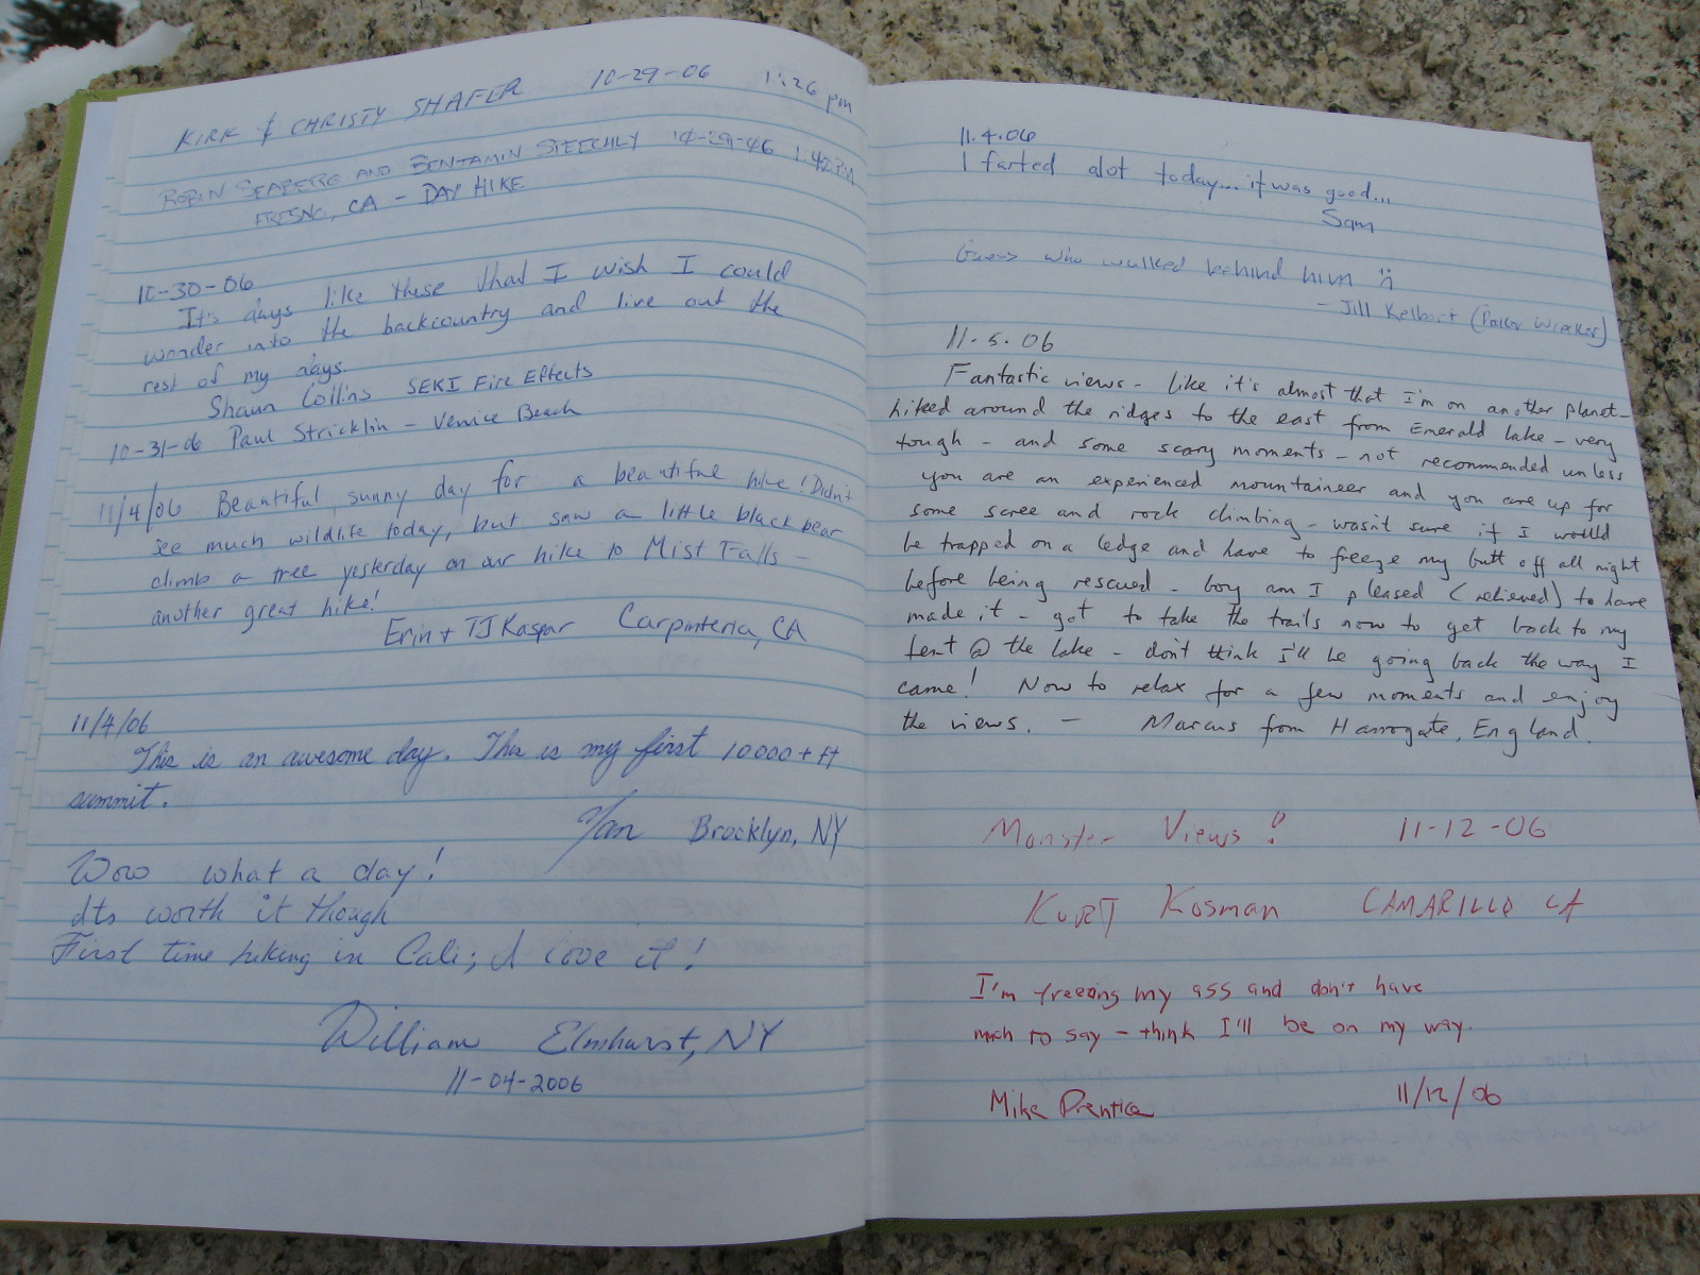 KIRK & CHRISTY SHAFER 10-29-06 1:26 pm
ROBIN SEABERG AND BENJAMIN SPEECHLY 10-29-06 1:42
FRESNO, CA - DAY HIKE
10-30-06
It's days like these that I wish I could
wonder into the backcountry and live out the
rest of my days.
Shaun Collins SEKI Fire Effects
10-31-06 Paul Stricklin - Venice Beach
11/4/06 Beautiful, sunny day for a beautiful hike! Didn't
see much wildlife today, but saw a little black bear
climb a tree yesterday on our hike to Mist Falls -
another great hike!
Erin + TJ Kaspar Carpinteria, CA
11/4/06
This is an awesome day. This is my first 10000+ ft
summit.
Brooklyn, NY
Wow what a day!
Its worth it though
First time hiking in Cali; I love it!
William Elmhurst, NY
11-04-2006
11.4.06
I farted alot today... it was good...
Sam
Guess who walked behind him
- Jill Kelbert
11.5.06
Fantastic views - like it's almost that I'm on another planet -
hiked around the ridges to the east from Emerald Lake - very
tough - and some scary moments - not recommended unless
you are an experienced mountaineer and you are up for
some scree and rock climbing - wasn't sure if I would
be trapped on a ledge and have to freeze my butt off all night
before being rescued - boy am I pleased (relieved) to have
made it - got to take the trails now to get back to my
tent @ the lake - don't think I'll be going back the way I
came! Now to relax for a few moments and enjoy
the views. - Marcus from Harrogate, England.
Monster Views! 11-12-06
KURT Kosman CAMARILLO CA
I'm freezing my ass and don't have
much to say - think I'll be on my way.
Mike Prentice 11/12/06